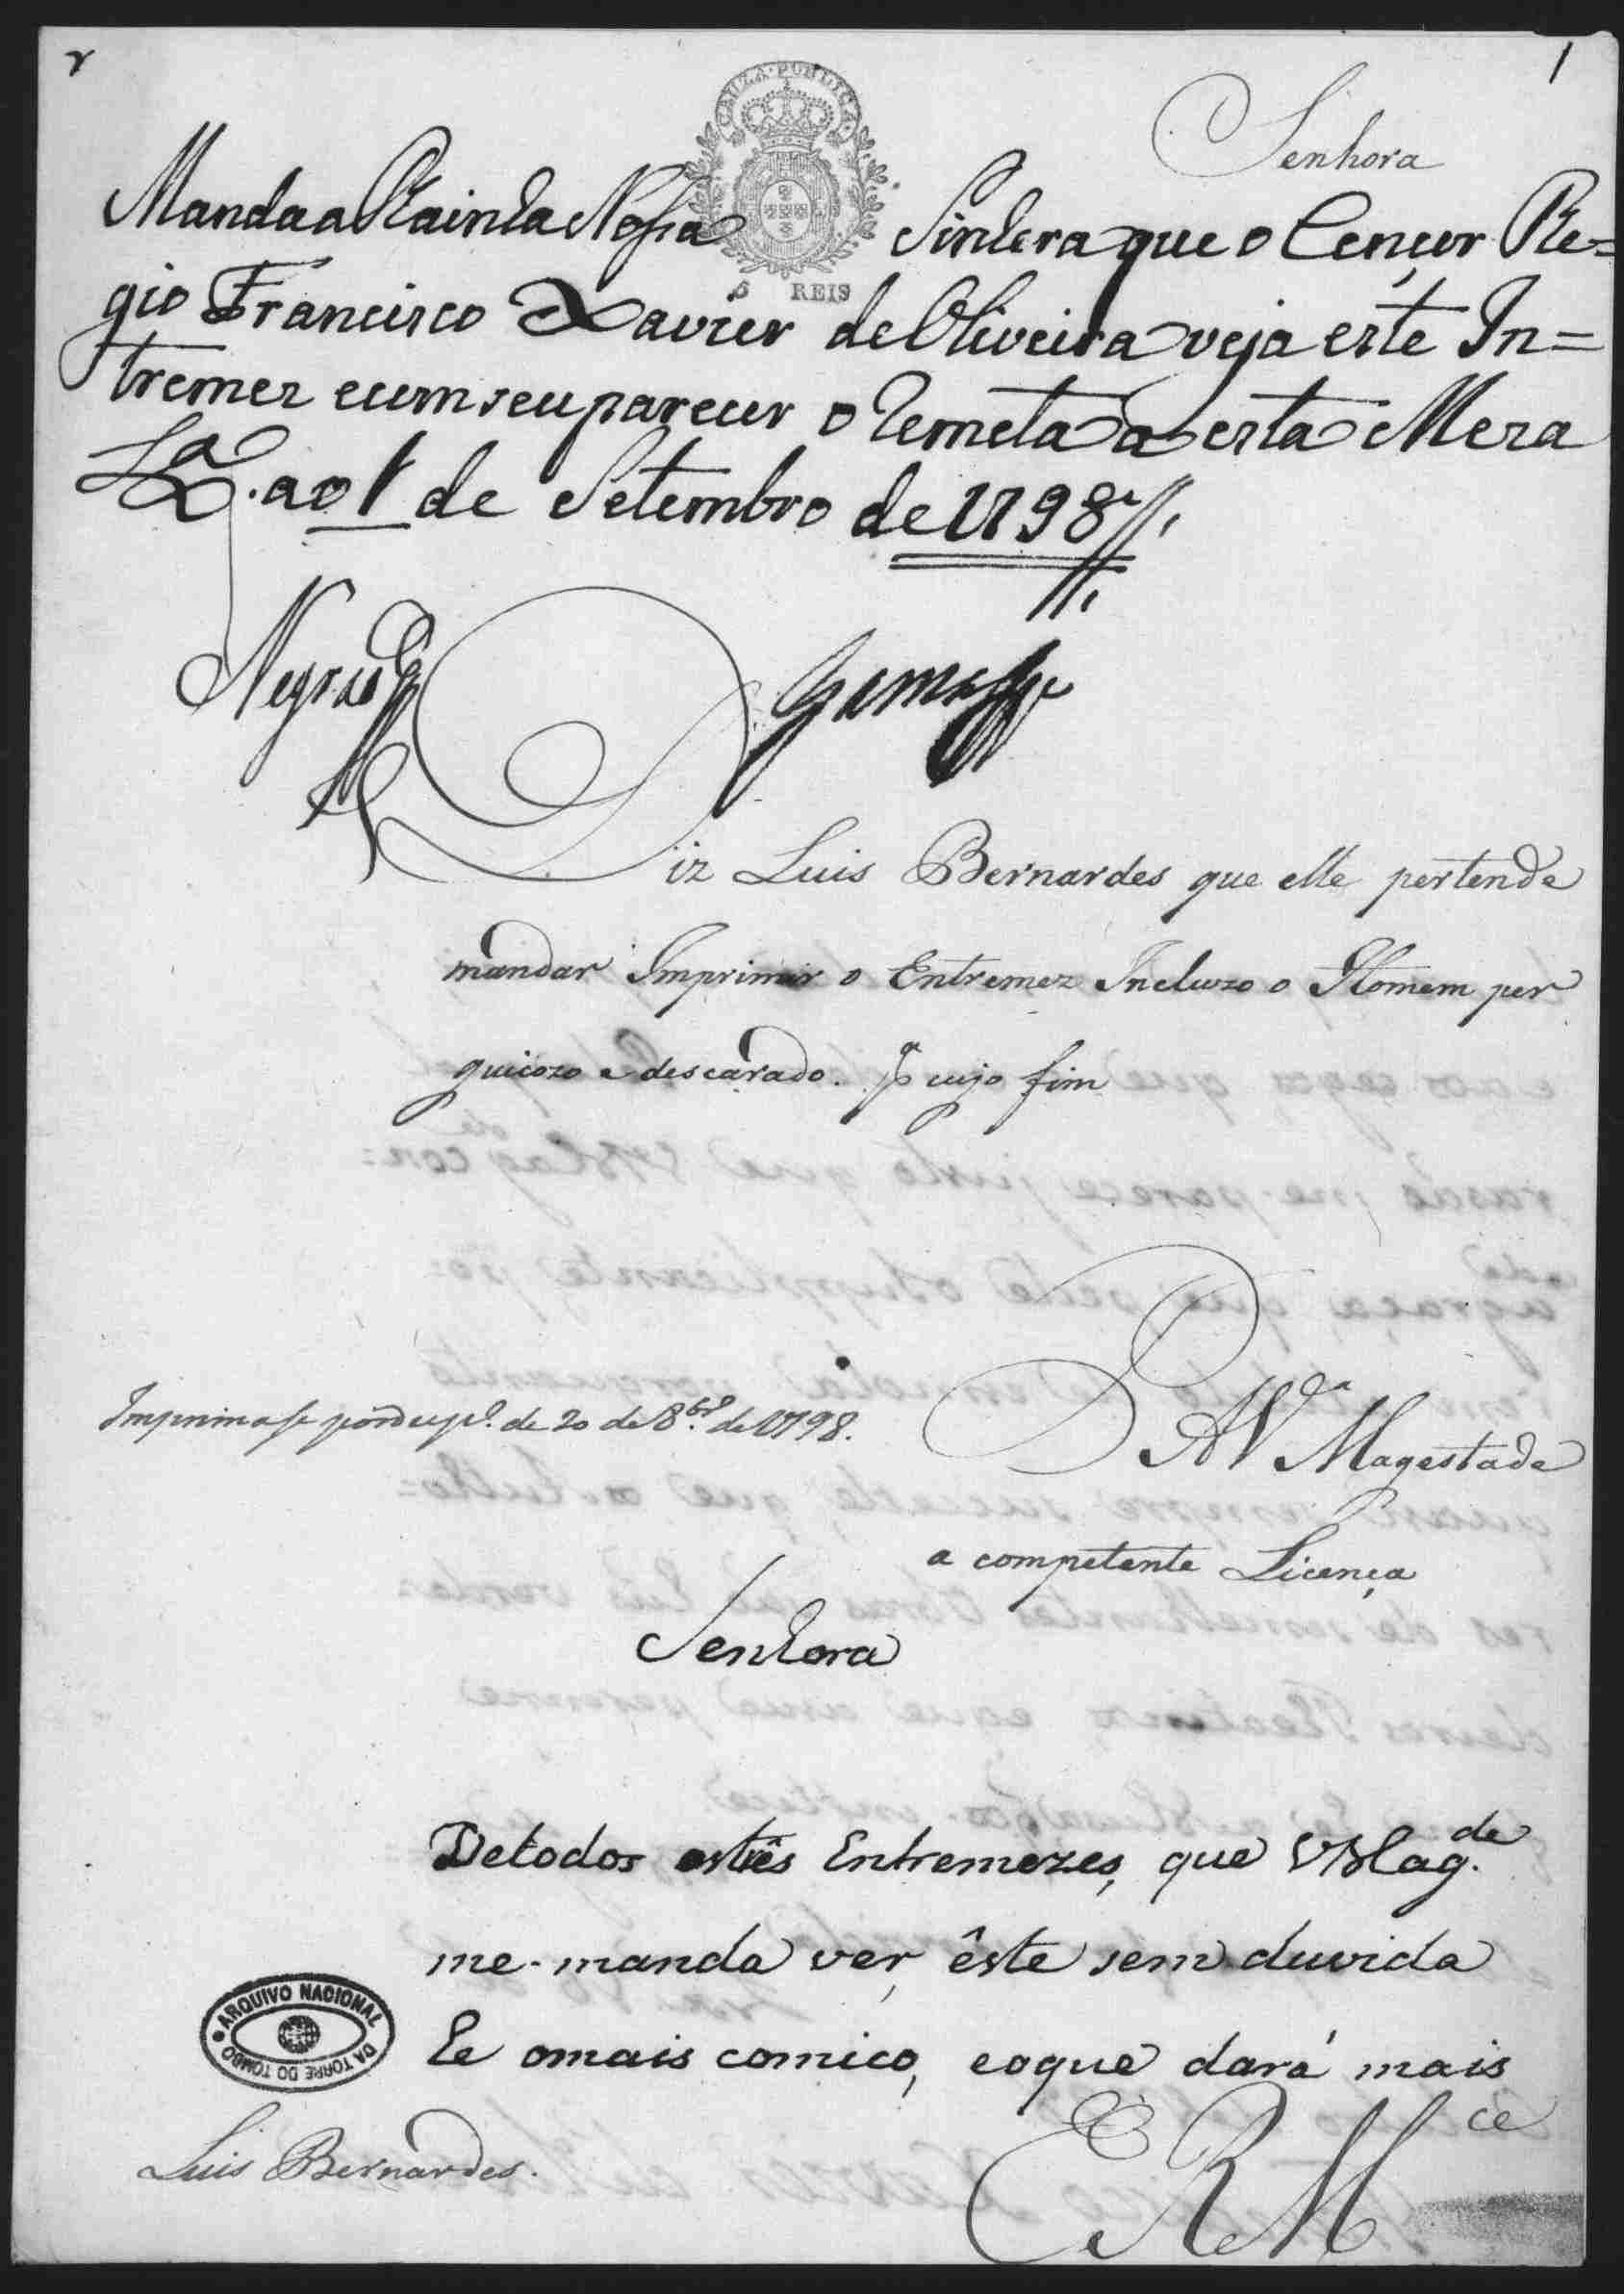 1
Senhora
CAUZA PUBLICA
5 REIS
Manda a Rainha Nossa Sinhora que o Cençor Re=
gio Francisco Xavier de Oliveira veja este In=
tremez e com seu parecer o Remeta a esta Meza
Lx.ª ao 1 de Setembro de 1798
Diz Luis Bernardes que elle pertende
mandar Imprimir o Entremez Incluzo o Homem per
guicozo e descarado. Pª cujo fim
P A Vª Magestade
Imprimase por desp.º de 20 de 8brº de 1798.
a competente Licença
Senhora
De todos estes Entremezes, que V Mag.de
me manda ver, êste sem duvida
he o mais comico, e o que dará mais
ARQUIVO NACIONAL
DA TORRE DO TOMBO
Luis Bernardes.
E R Mce